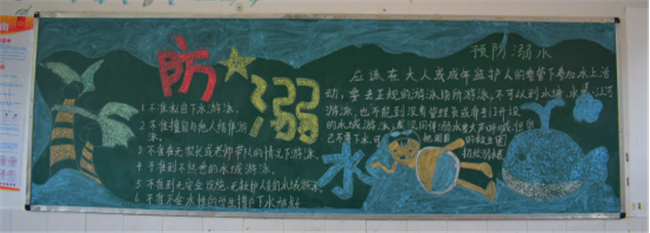 防溺水
1.不准私自下水游泳。
2.不准擅自与他人结伴游
泳。
3.不准在无家长或老师带队的情况下游泳。
4.不准到不熟悉的水域游泳。
5.不准到无安全设施、无救护人员的水域游泳。
6.不准不会水性的学生擅自下水施救。
预防溺水
应该在大人或成年监护人的看管下参加水上活
动,要去正规的游泳场所游泳,不可以到水塘、水渠、江河
游泳,也不能到没有管理员或
的水域游泳,